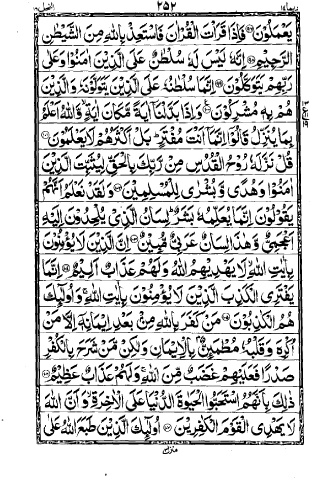 النحل ١٦ ٢٥٢ ربما ١٤
يَعْمَلُوْنَ۝ فَاِذَا قَرَاْتَ الْقُرْاٰنَ فَاسْتَعِذْ بِاللّٰهِ مِنَ الشَّيْطٰنِ
الرَّجِيْمِ۝ اِنَّهٗ لَيْسَ لَهٗ سُلْطٰنٌ عَلَى الَّذِيْنَ اٰمَنُوْا وَعَلٰى
رَبِّهِمْ يَتَوَكَّلُوْنَ۝ اِنَّمَا سُلْطٰنُهٗ عَلَى الَّذِيْنَ يَتَوَلَّوْنَهٗ وَالَّذِيْنَ
هُمْ بِهٖ مُشْرِكُوْنَ۝ وَاِذَا بَدَّلْنَاۤ اٰيَةً مَّكَانَ اٰيَةٍ وَّاللّٰهُ اَعْلَمُ
بِمَا يُنَزِّلُ قَالُوْۤا اِنَّمَاۤ اَنْتَ مُفْتَرٍ بَلْ اَكْثَرُهُمْ لَا يَعْلَمُوْنَ۝
قُلْ نَزَّلَهٗ رُوْحُ الْقُدُسِ مِنْ رَّبِّكَ بِالْحَقِّ لِيُثَبِّتَ الَّذِيْنَ
اٰمَنُوْا وَهُدًى وَّبُشْرٰى لِلْمُسْلِمِيْنَ۝ وَلَقَدْ نَعْلَمُ اَنَّهُمْ
يَقُوْلُوْنَ اِنَّمَا يُعَلِّمُهٗ بَشَرٌ لِسَانُ الَّذِيْ يُلْحِدُوْنَ اِلَيْهِ
اَعْجَمِيٌّ وَّهٰذَا لِسَانٌ عَرَبِيٌّ مُّبِيْنٌ۝ اِنَّ الَّذِيْنَ لَا يُؤْمِنُوْنَ
بِاٰيٰتِ اللّٰهِ لَا يَهْدِيْهِمُ اللّٰهُ وَلَهُمْ عَذَابٌ اَلِيْمٌ۝ اِنَّمَا
يَفْتَرِى الْكَذِبَ الَّذِيْنَ لَا يُؤْمِنُوْنَ بِاٰيٰتِ اللّٰهِ وَاُولٰٓئِكَ
هُمُ الْكٰذِبُوْنَ۝ مَنْ كَفَرَ بِاللّٰهِ مِنْۢ بَعْدِ اِيْمَانِهٖۤ اِلَّا مَنْ
اُكْرِهَ وَقَلْبُهٗ مُطْمَئِنٌّۢ بِالْاِيْمَانِ وَلٰكِنْ مَّنْ شَرَحَ بِالْكُفْرِ
صَدْرًا فَعَلَيْهِمْ غَضَبٌ مِّنَ اللّٰهِ وَلَهُمْ عَذَابٌ عَظِيْمٌ۝
ذٰلِكَ بِاَنَّهُمُ اسْتَحَبُّوا الْحَيٰوةَ الدُّنْيَا عَلَى الْاٰخِرَةِ وَاَنَّ اللّٰهَ
لَا يَهْدِى الْقَوْمَ الْكٰفِرِيْنَ۝ اُولٰٓئِكَ الَّذِيْنَ طَبَعَ اللّٰهُ عَلٰى
منزل ٣